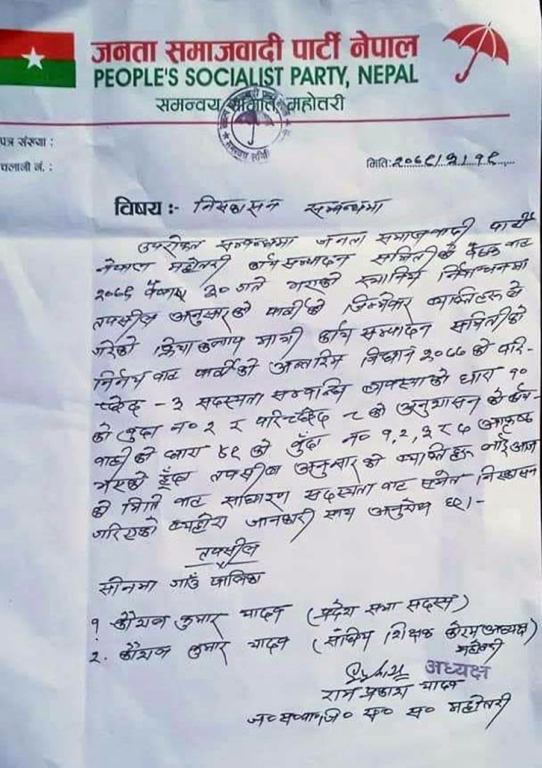 जनता समाजवादी पार्टी नेपाल
PEOPLE'S SOCIALIST PARTY, NEPAL
समन्वय समिति महोत्तरी
पत्र संख्या :
चलानी नं. :
मिति: २०७९/२/१९
विषय :- निस्काशन सम्बन्धमा
उपरोक्त सम्बन्धमा जनता समाजवादी पार्टी
नेपाल महोत्तरी कार्य सम्पादन समितिको बैठक बाट
२०७९ बैशाख ३० गते भएको स्थानिय निर्वाचनमा
तपसील अनुसारको पार्टीको जिम्मेवार व्यक्तिहरुले
गरेको क्रियाकलाप मात्री कार्य सम्पादन समितिको
निर्णय बाट पार्टीको अन्तरिम विधान २०७७ को परि-
च्छेद - ३ सदस्यता सम्बन्धि व्यवस्थाको धारा १०
को बुंदा नं० २ र परिच्छेद ८ को अनुशासनको
को धारा ४९ को बुँदा नं १,२,३ र ५
भएको हुँदा तपसील अनुसारको व्यक्तिहरु लाई आज
को मिति बाट साधारण सदस्यता बाट समेत निस्काशन
गरिएको व्यहोरा जानकारी साथ अनुरोध छ।-
तपसील
सोनमा गाउँ पालिका
१ कुमार यादव (प्रदेश सभा सदस्य)
२. कुमार यादव (संघिय शिक्षक फोरम अध्यक्ष)
महोत्तरी
अध्यक्ष
राम प्रकाश यादव
महोत्तरी